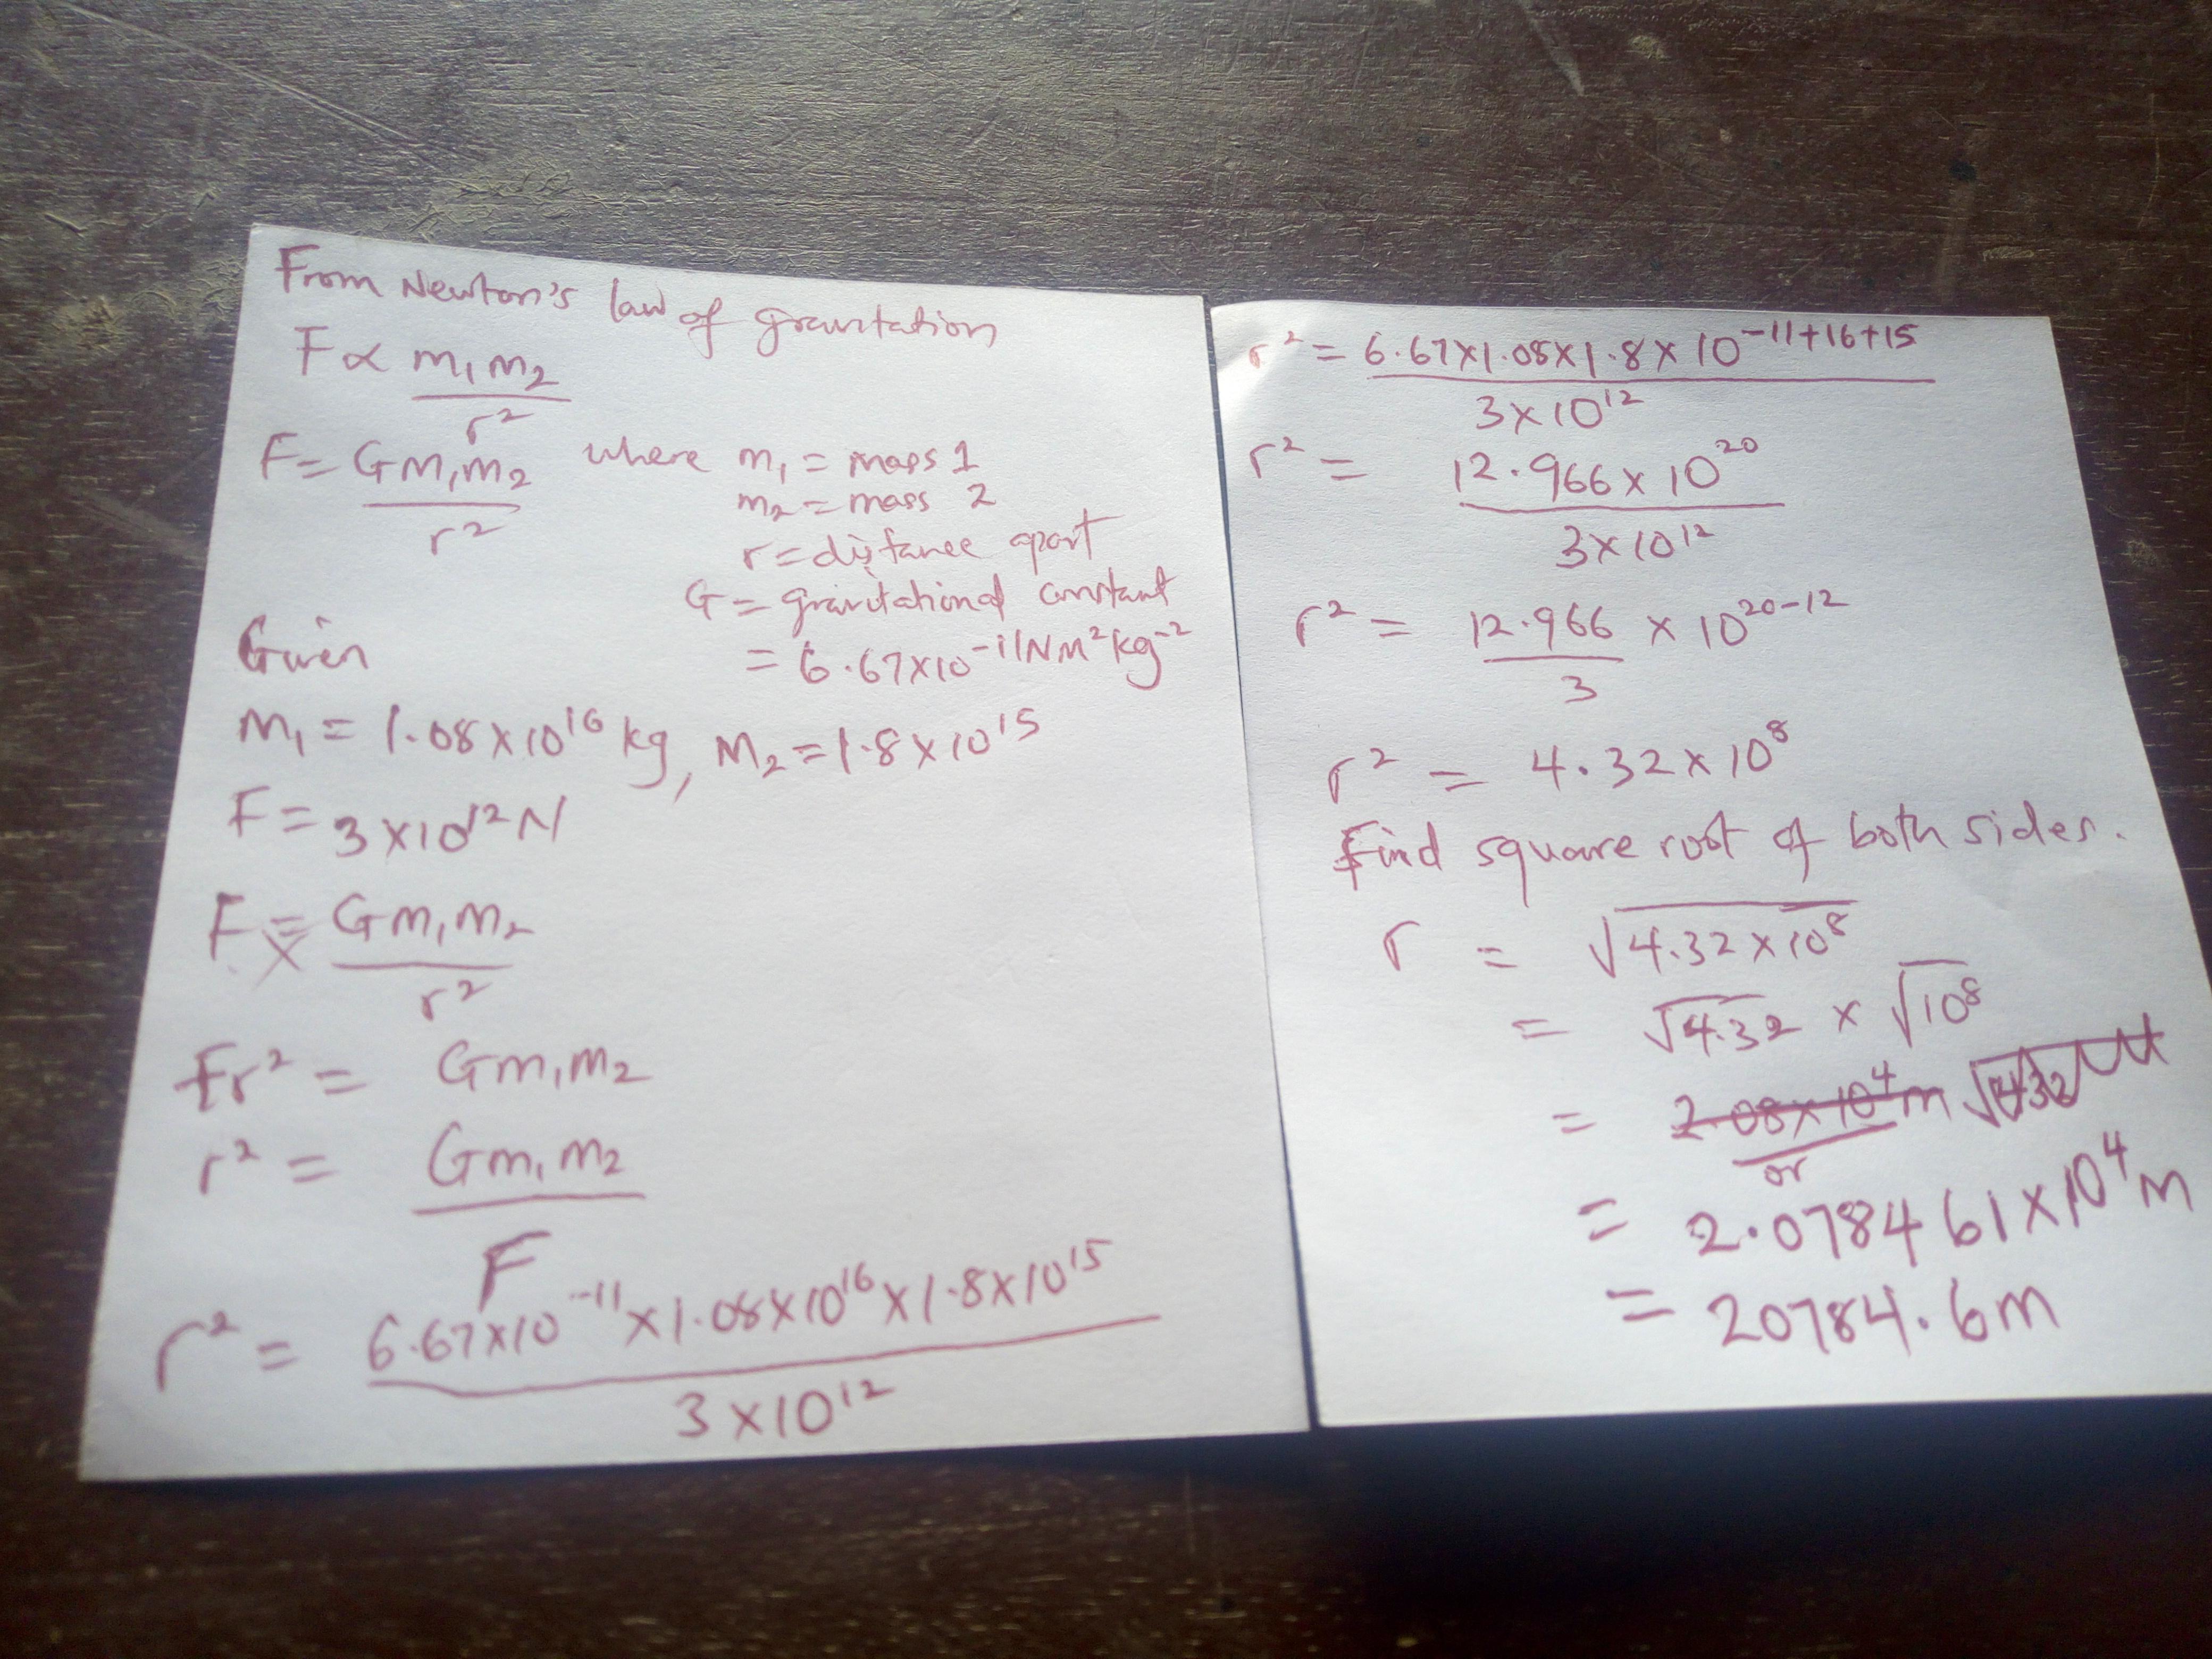 From Newton's law of gravitation
F ∝ m₁m₂
r²
F = Gm₁m₂ where m₁ = mass 1
r²
m₂ = mass 2
r = distance apart
G = gravitational constant
= 6.67×10⁻¹¹Nm²kg⁻²
Given
m₁ = 1.08×10¹⁶ kg, m₂ = 1.8×10¹⁵
F = 3×10¹²N
F = Gm₁m₂
r²
Fr² = Gm₁m₂
r² = Gm₁m₂
F
r² = 6.67×10⁻¹¹×1.08×10¹⁶×1.8×10¹⁵
3×10¹²
r² = 6.67×1.08×1.8×10⁻¹¹⁺¹⁶⁺¹⁵
3×10¹²
r² = 12.966×10²⁰
3×10¹²
r² = 12.966 × 10²⁰⁻¹²
3
r² = 4.32×10⁸
Find square root of both sides.
r = √4.32×10⁸
= √4.32 × √10⁸
= 2.08×10⁴m
or
= 2.078461×10⁴m
= 20784.6m